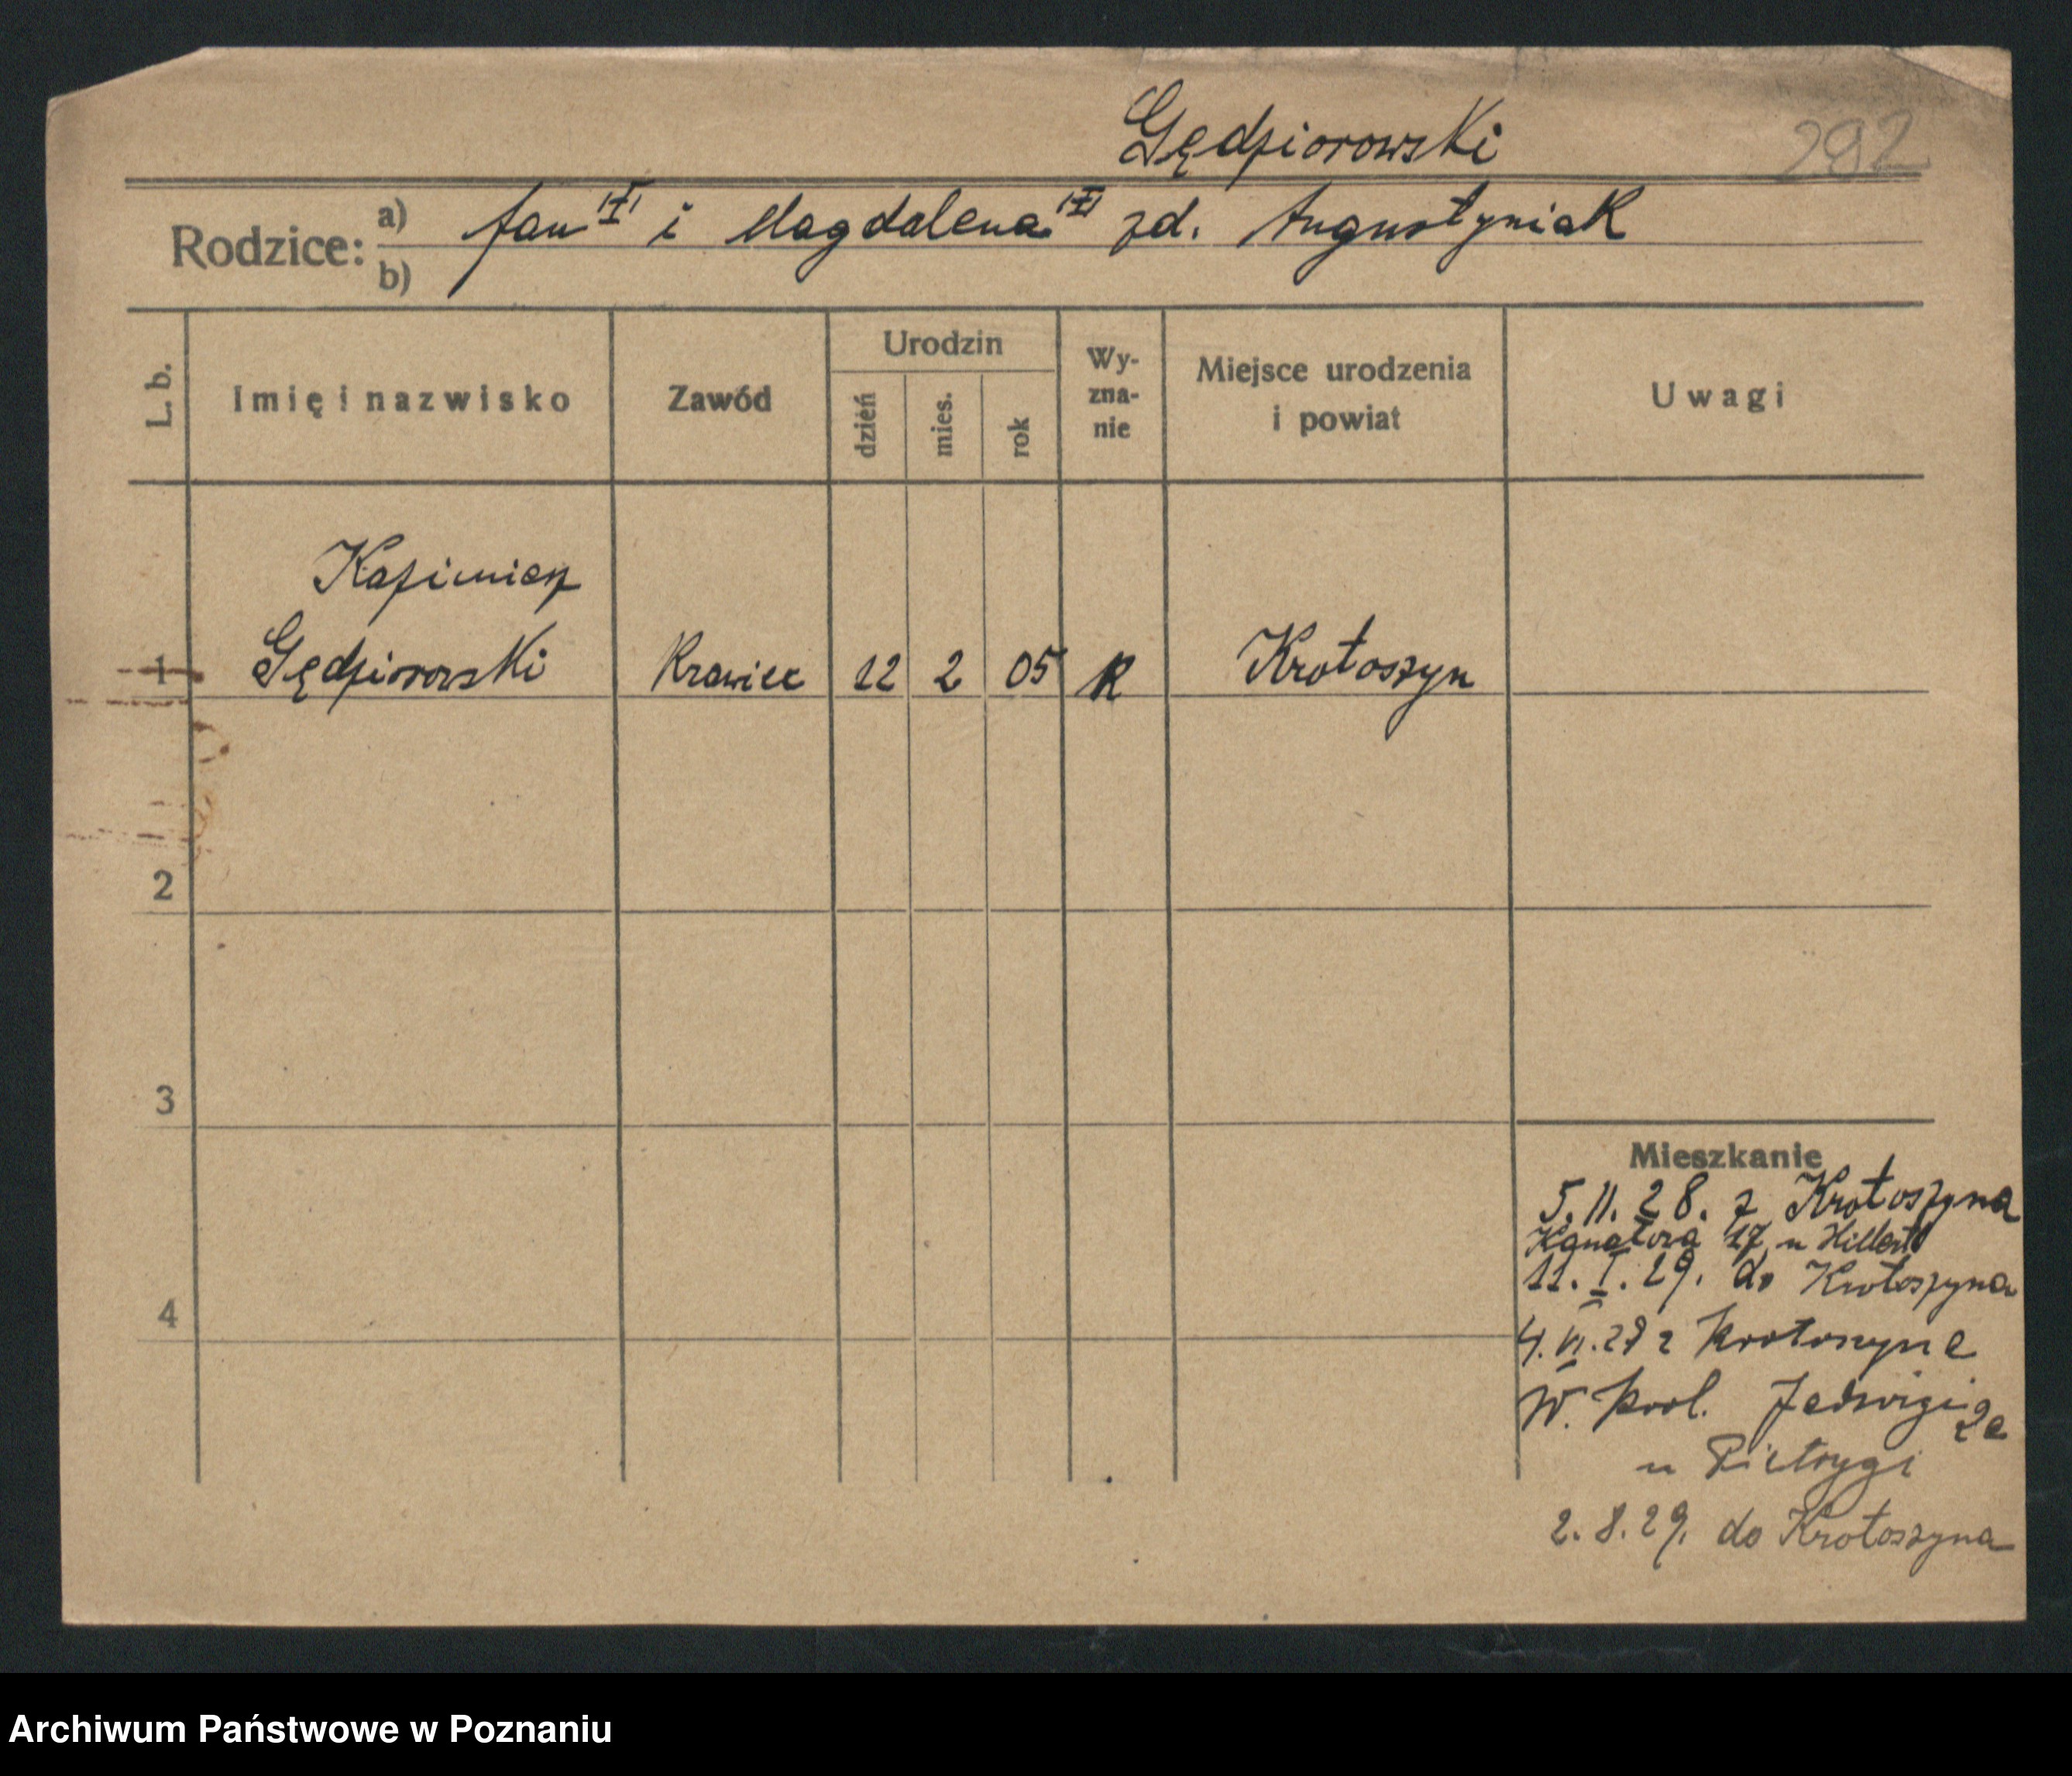 Gędziorowski 292
Rodzice: a) Jan i Magdalena zd. Augustyniak
b)
L. b. Imię i nazwisko Zawód Urodzin dzień mies. rok Wy-zna-nie Miejsce urodzenia i powiat Uwagi
Kazimierz
1 Gędziorowski Krawiec 12 2 05 K Krotoszyn
2
3
Mieszkanie
5.11.28. z Krotoszyna
17 u
11.I.29. do Krotoszyna
4
4.VI.29 z Krotoszyna
W. Król. Jadwigi 2a
u Pietrygi
2.8.29. do Krotoszyna
Archiwum Państwowe w Poznaniu